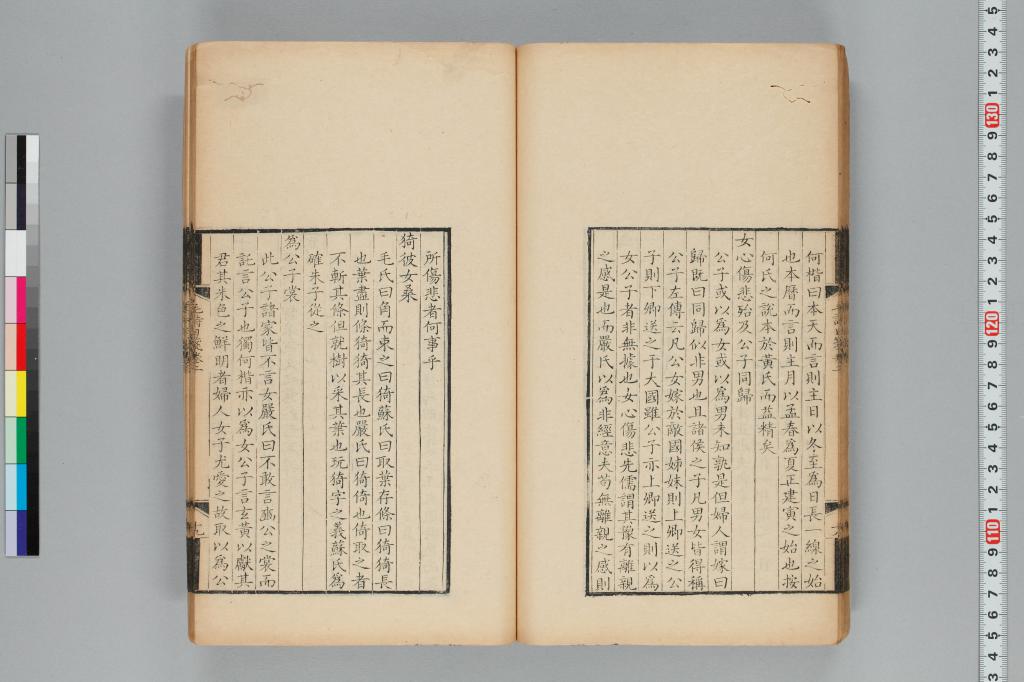 何楷曰本天而言則主日以冬至為日長一線之始
也本曆而言則主月以孟春為夏正建寅之始也按
何氏之說本於黃氏而益精矣
女心傷悲殆及公子同歸
公子或以為女或以為男未知孰是但婦人謂嫁曰
歸既曰同歸似非男也且諸侯之子凡男女皆得稱
公子左傳云凡公女嫁於敵國姊妹則上卿送之公
子則下卿送之于大國雖公子亦上卿送之則以為
女公子者非無據也女心傷悲先儒謂其豫有離親
之感是也而嚴氏以為非經意夫苟無離親之感則
所傷悲者何事乎
猗彼女桑
毛氏曰角而束之曰猗蘇氏曰取葉存條曰猗猗長
也葉盡則條猗猗其長也嚴氏曰猗倚也倚取之者
不斬其條但就樹以采其葉也玩猗字之義蘇氏為
確朱子從之
為公子裳
此公子諸家皆不言女嚴氏曰不敢言豳公之裳而
託言公子也獨何楷亦以為女公子言玄黃以獻其
君其朱色之鮮明者婦人女子尤愛之故取以為公